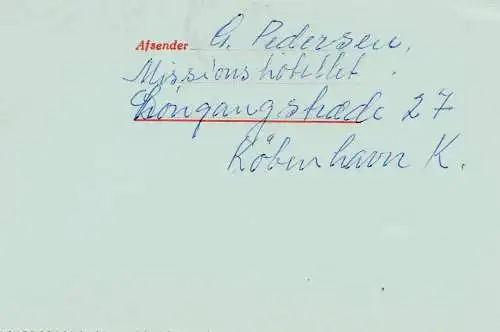 Afsender G. Pedersen,
Missionshotellet.
Löngangstræde 27
Köbenhavn K.